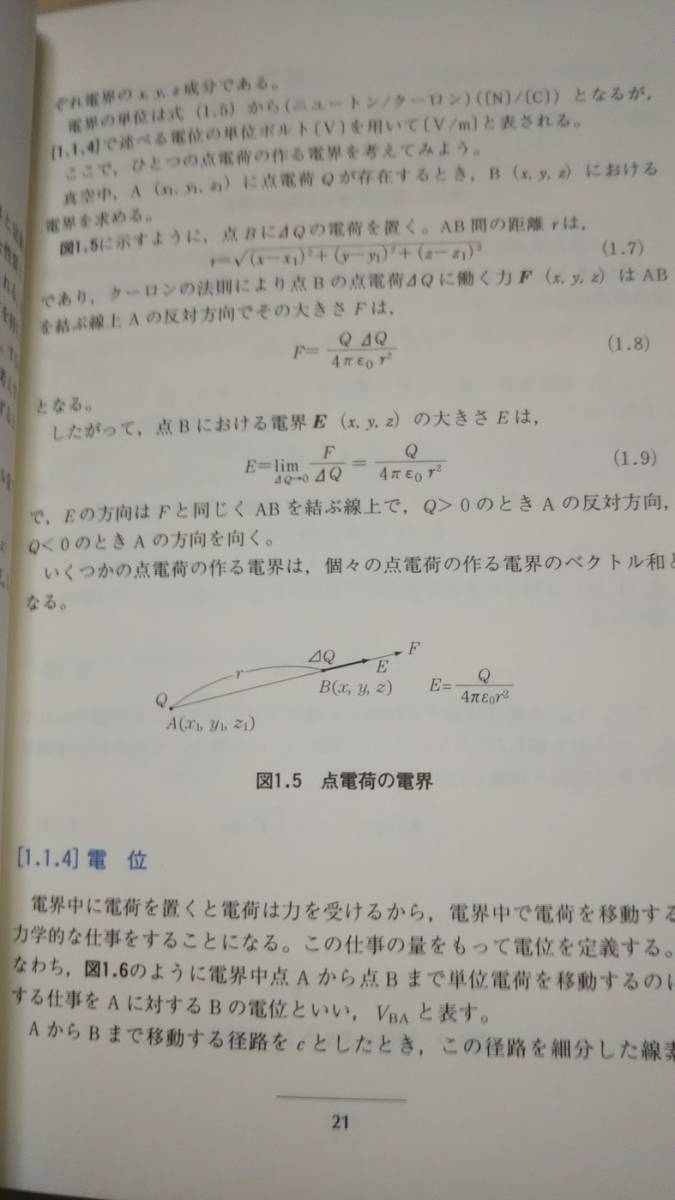 ぞれ電界のx, y, z成分である。
電界の単位は式 (1.5) から(ニュートン/クーロン)(〔N〕/〔C〕) となるが,
[1.1.4]で述べる電位の単位ボルト〔V〕を用いて〔V/m〕と表される。
ここで, ひとつの点電荷の作る電界を考えてみよう。
真空中, A (x₁, y₁, z₁) に点電荷 Q が存在するとき, B (x, y, z) における
電界を求める。
図1.5に示すように, 点 B に⊿Qの電荷を置く。AB 間の距離 r は,
r=√(x−x₁)²+(y−y₁)²+(z−z₁)² (1.7)
であり, クーロンの法則により点 B の点電荷⊿Qに働く力 F (x, y, z) は AB
を結ぶ線上 A の反対方向でその大きさ F は,
F= Q ⊿Q / 4πε₀ r² (1.8)
となる。
したがって, 点 B における電界 E (x, y, z) の大きさ E は,
E=lim ⊿Q→0 F / ⊿Q = Q / 4πε₀ r² (1.9)
で, E の方向は F と同じく AB を結ぶ線上で, Q>0 のとき A の反対方向,
Q<0 のとき A の方向を向く。
いくつかの点電荷の作る電界は, 個々の点電荷の作る電界のベクトル和と
なる。
⊿Q
F
r
E
B(x, y, z)
E= Q / 4πε₀r²
Q
A(x₁, y₁, z₁)
図1.5 点電荷の電界
[1.1.4] 電 位
電界中に電荷を置くと電荷は力を受けるから, 電界中で電荷を移動する
力学的な仕事をすることになる。この仕事の量をもって電位を定義する。
なわち, 図1.6のように電界中点 A から点 B まで単位電荷を移動するのに
する仕事を A に対する B の電位といい, V_BA と表す。
A から B まで移動する径路を c としたとき, この径路を細分した線素
21